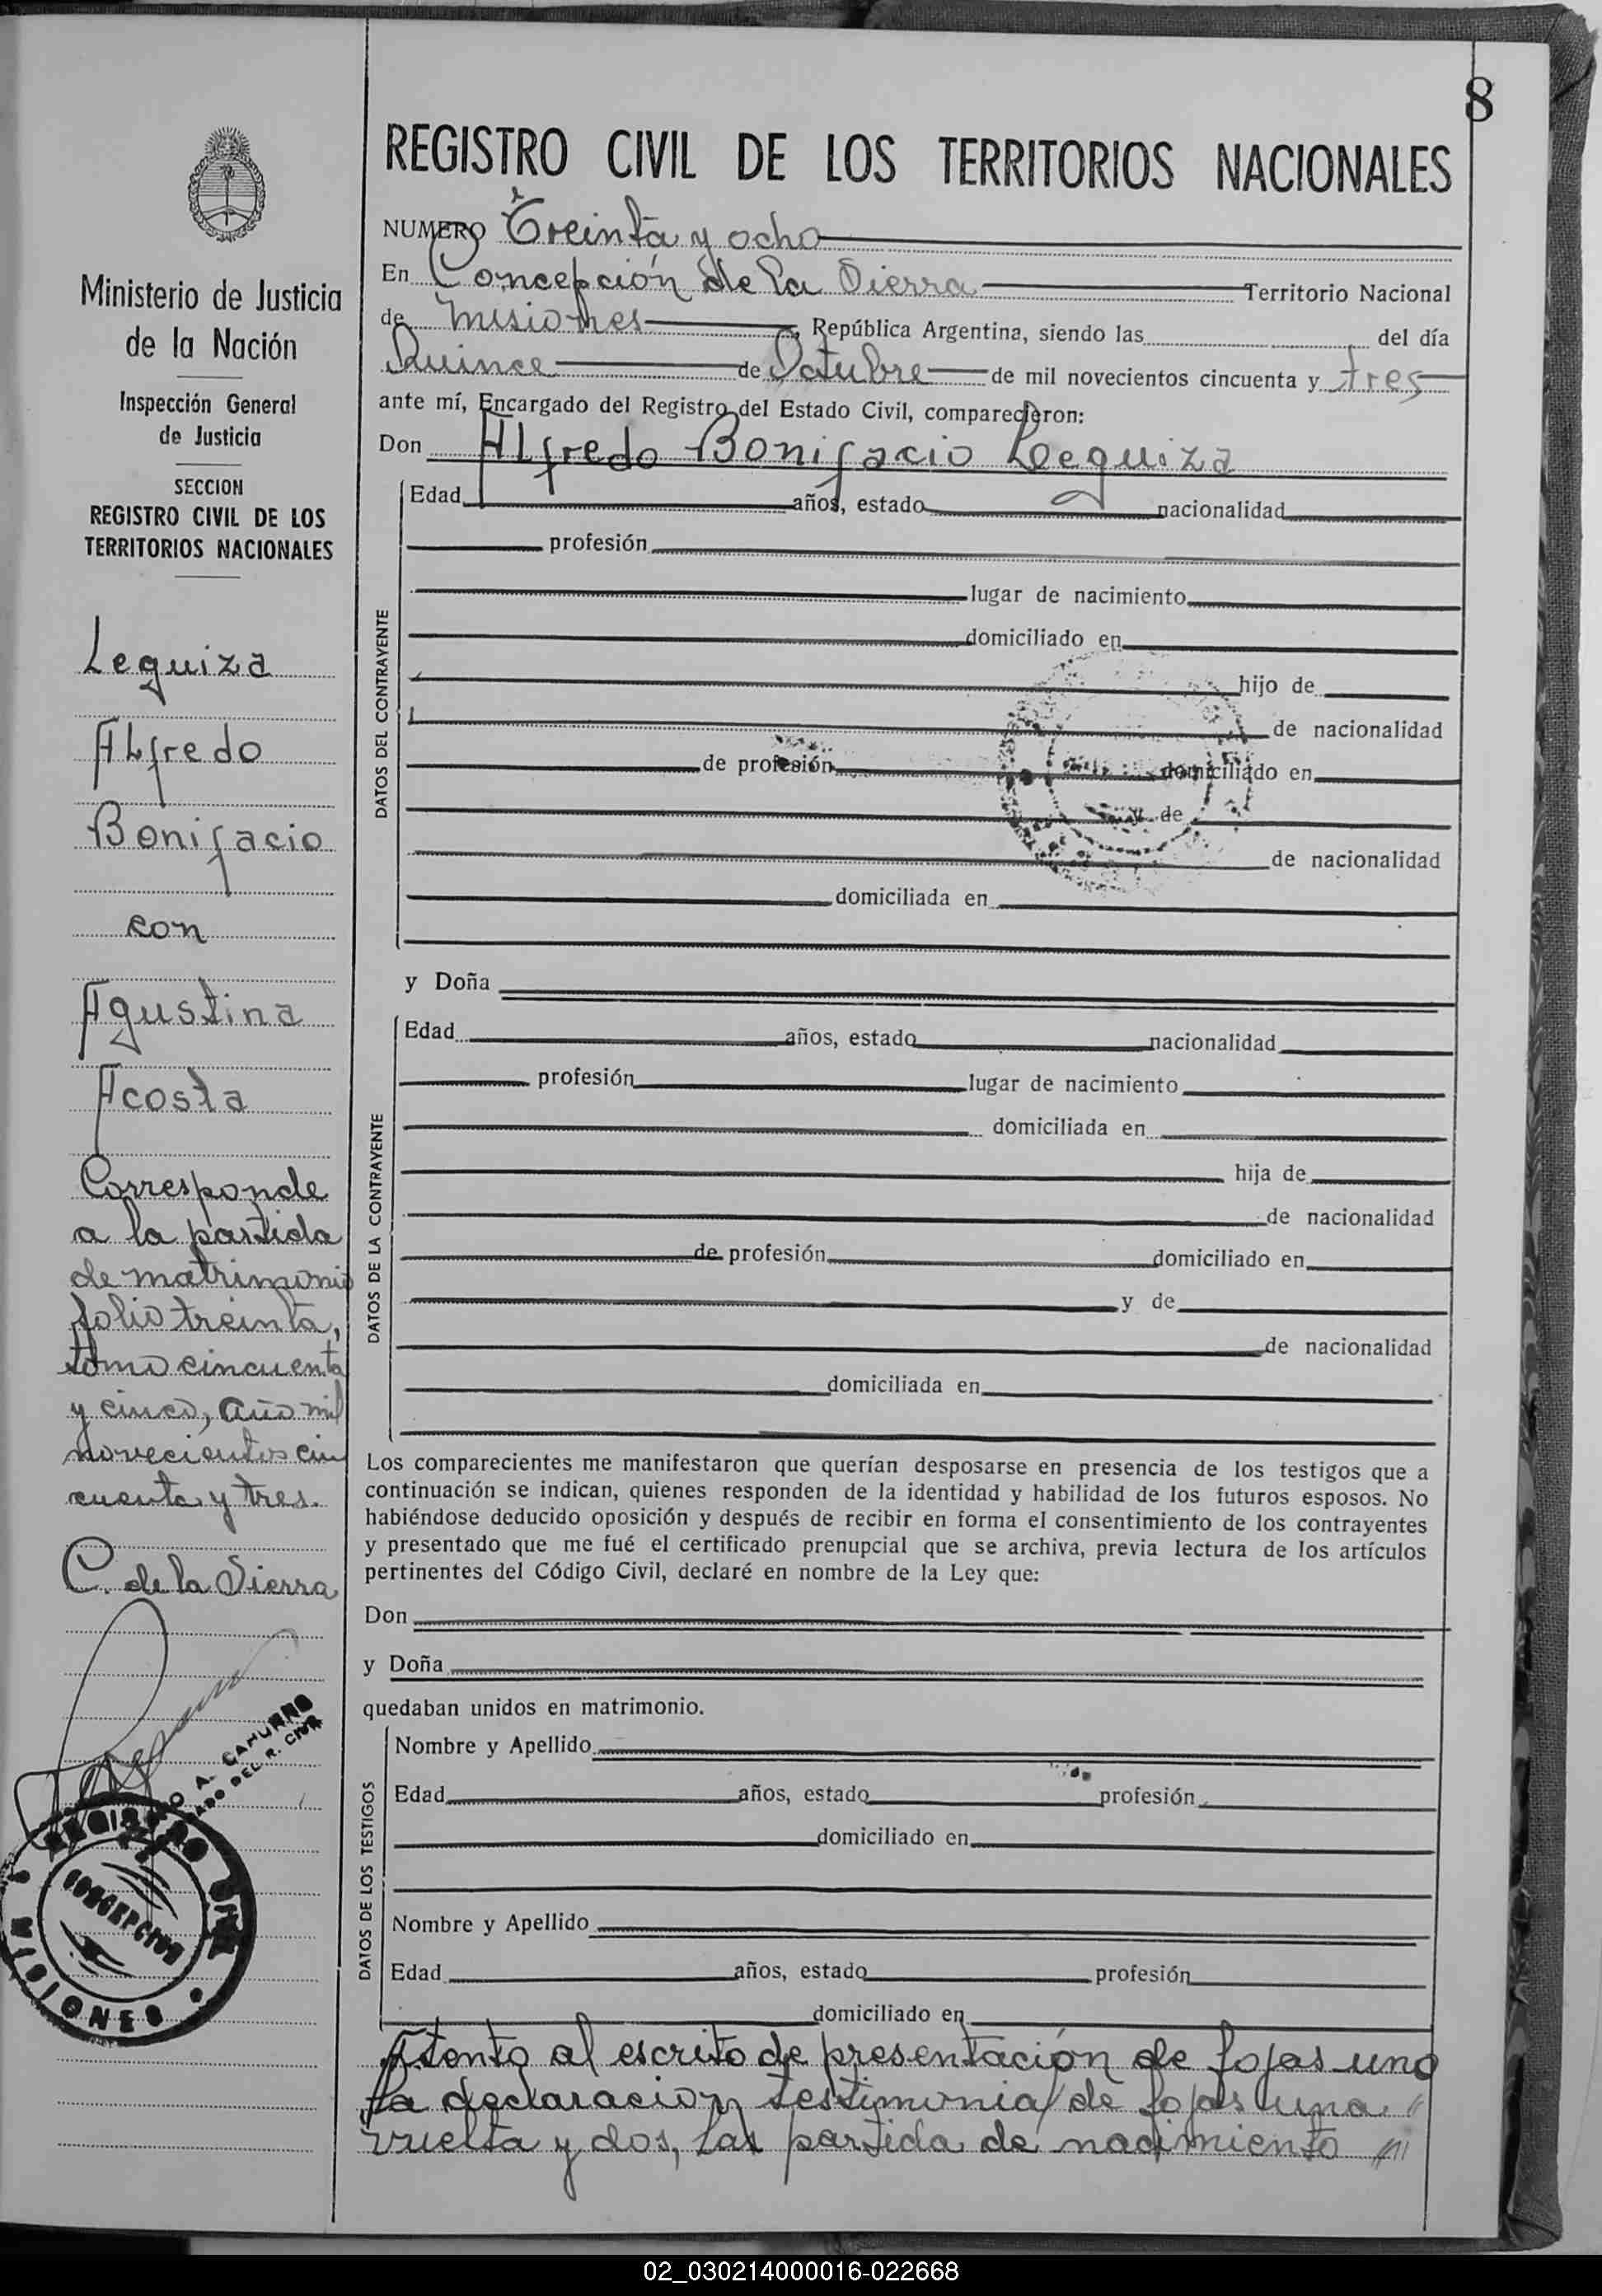 8
REGISTRO CIVIL DE LOS TERRITORIOS NACIONALES
NUMERO Treinta y ocho
En Concepción de la Sierra Territorio Nacional
de Misiones, República Argentina, siendo las del día
Quince de Octubre de mil novecientos cincuenta y tres
ante mí, Encargado del Registro del Estado Civil, comparecieron:
Don Alfredo Bonifacio Leguiza
Edad años, estado nacionalidad
profesión
lugar de nacimiento
domiciliado en
hijo de
de nacionalidad
de profesión domiciliado en
y de
de nacionalidad
domiciliada en
DATOS DEL CONTRAYENTE
y Doña
Edad años, estado nacionalidad
profesión lugar de nacimiento
domiciliada en
hija de
de nacionalidad
de profesión domiciliado en
y de
de nacionalidad
domiciliada en
DATOS DE LA CONTRAYENTE
Los comparecientes me manifestaron que querían desposarse en presencia de los testigos que a
continuación se indican, quienes responden de la identidad y habilidad de los futuros esposos. No
habiéndose deducido oposición y después de recibir en forma el consentimiento de los contrayentes
y presentado que me fué el certificado prenupcial que se archiva, previa lectura de los artículos
pertinentes del Código Civil, declaré en nombre de la Ley que:
Don
y Doña
quedaban unidos en matrimonio.
Nombre y Apellido
Edad años, estado profesión
domiciliado en
Nombre y Apellido
Edad años, estado profesión
domiciliado en
DATOS DE LOS TESTIGOS
Atento al escrito de presentación de fojas uno
la declaración testimonial de fojas una
vuelta y dos, las partida de nacimiento
Ministerio de Justicia
de la Nación
Inspección General
de Justicia
SECCION
REGISTRO CIVIL DE LOS
TERRITORIOS NACIONALES
Leguiza
Alfredo
Bonifacio
con
Agustina
Acosta
Corresponde
a la partida
de matrimonio
folio treinta,
tomo cincuenta
y cinco, año mil
novecientos cin
cuenta y tres.
C. de la Sierra
A. CAMURRO
DEL R. CIVIL
REGISTRO
CONCEPCION
MISIONES
02_030214000016-022668